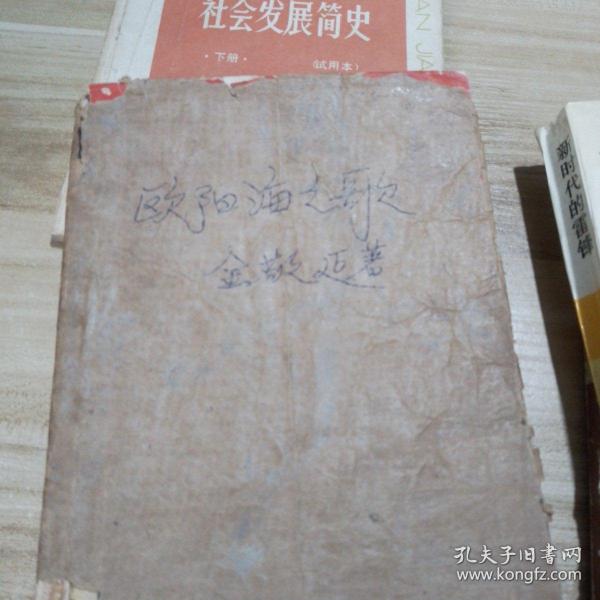 社会发展简史
·下册· (试用本)
AN JIA
欧阳海之歌
金敬迈著
新时代的雷锋
孔夫子旧书网
www.kongfz.com